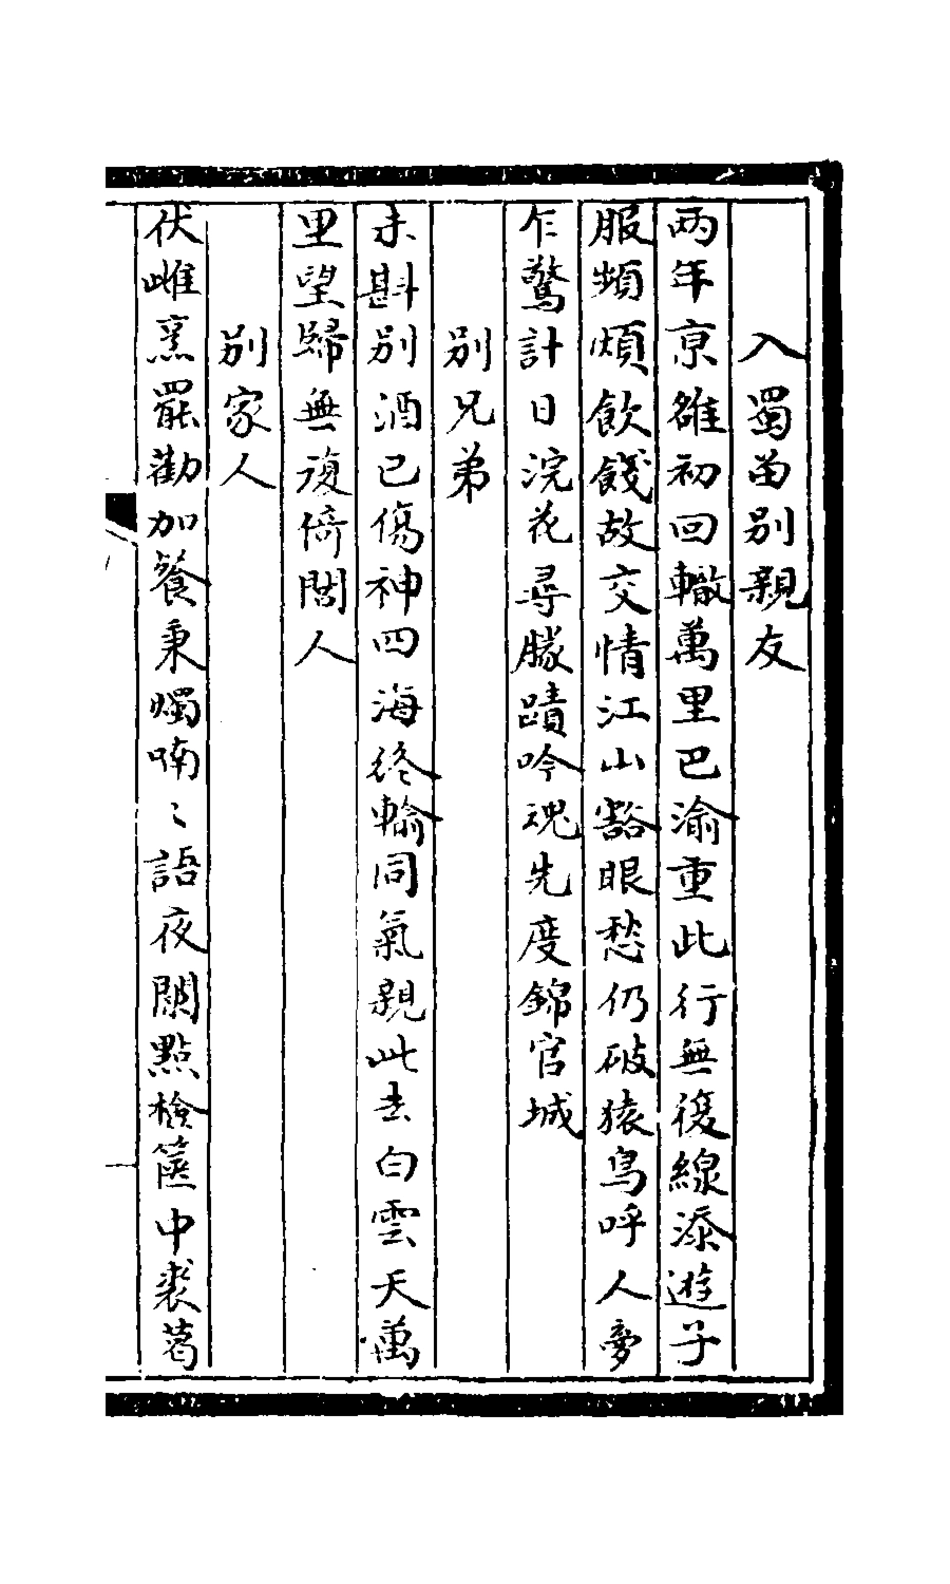 入蜀留别親友
兩年京雒初回轍萬里巴渝重此行無復線添遊子
服頻煩飲餞故交情江山豁眼愁仍破猿鳥呼人夢
乍驚計日浣花尋勝蹟吟魂先度錦官城
别兄弟
未斟别酒已傷神四海終輸同氣親此去白雲天萬
里望歸無復倚閭人
别家人
伏雌烹罷勸加餐秉燭喃〻語夜闌點檢篋中裘葛